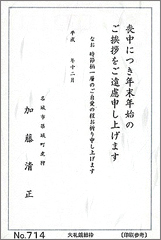 喪中につき年末年始の
ご挨拶をご遠慮申し上げます
なお 時節柄一層のご自愛の程お祈り申し上げます
平成 年十二月
名城市築城町虎狩
加藤清正
No.714
大礼鏡郭枠
(印刷参考)